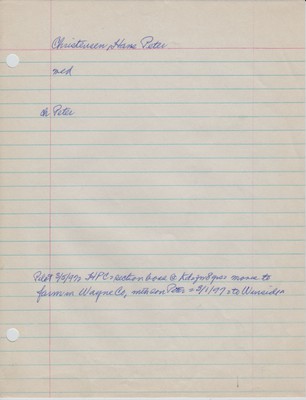 Christensen, Hans Peter
md
ch Peter
Pilot 3/3/97: HPC section boss @ Kilgore Jct moves to
farm in Wayne Co, with son Peter 3/1/97 to Winside